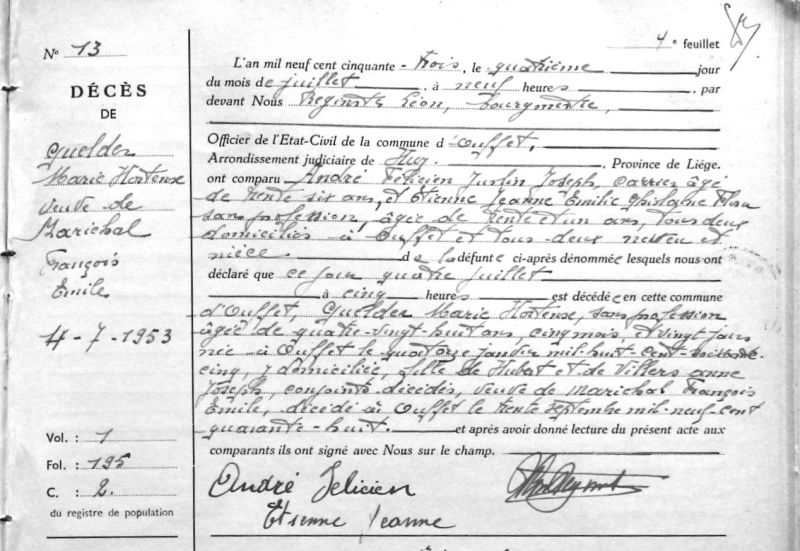 4e feuillet
87.
N° 13
DÉCÈS
DE
Guelder
Marie Hortense
veuve de
Maréchal
François
Emile
4-7-1953
Vol. : 1
Fol. : 195
C. : 2.
du registre de population
L'an mil neuf cent cinquante - trois, le quatrième jour
du mois de juillet, à neuf heures, par
devant Nous Léon, bourgmestre,
Officier de l'Etat-Civil de la commune d'Ouffet,
Arrondissement judiciaire de Huy. , Province de Liége.
ont comparu André Félicien Joseph, carrier âgé
de trente six ans, et Etienne Jeanne Emilie Ghislaine
sans profession, âgée de trente et un ans, tous deux
domiciliés à Ouffet et tous deux neveu et
nièce. de la défunte ci-après dénommée lesquels nous ont
déclaré que ce jour quatre juillet
à cinq heures est décédée en cette commune
d'Ouffet, Guelder Marie Hortense, sans profession
âgée de quatre-vingt-huit ans, cinq mois et vingt jours
née à Ouffet le quatorze janvier mil-huit-cent-soixante-
cinq, y domiciliée, fille de Hubert et de Villers Anne
Joseph, conjoints décédés, veuve de Maréchal François
Emile, décédé à Ouffet le trente septembre mil-neuf-cent
quarante-huit. et après avoir donné lecture du présent acte aux
comparants ils ont signé avec Nous sur le champ.
André Felicien
Etienne Jeanne